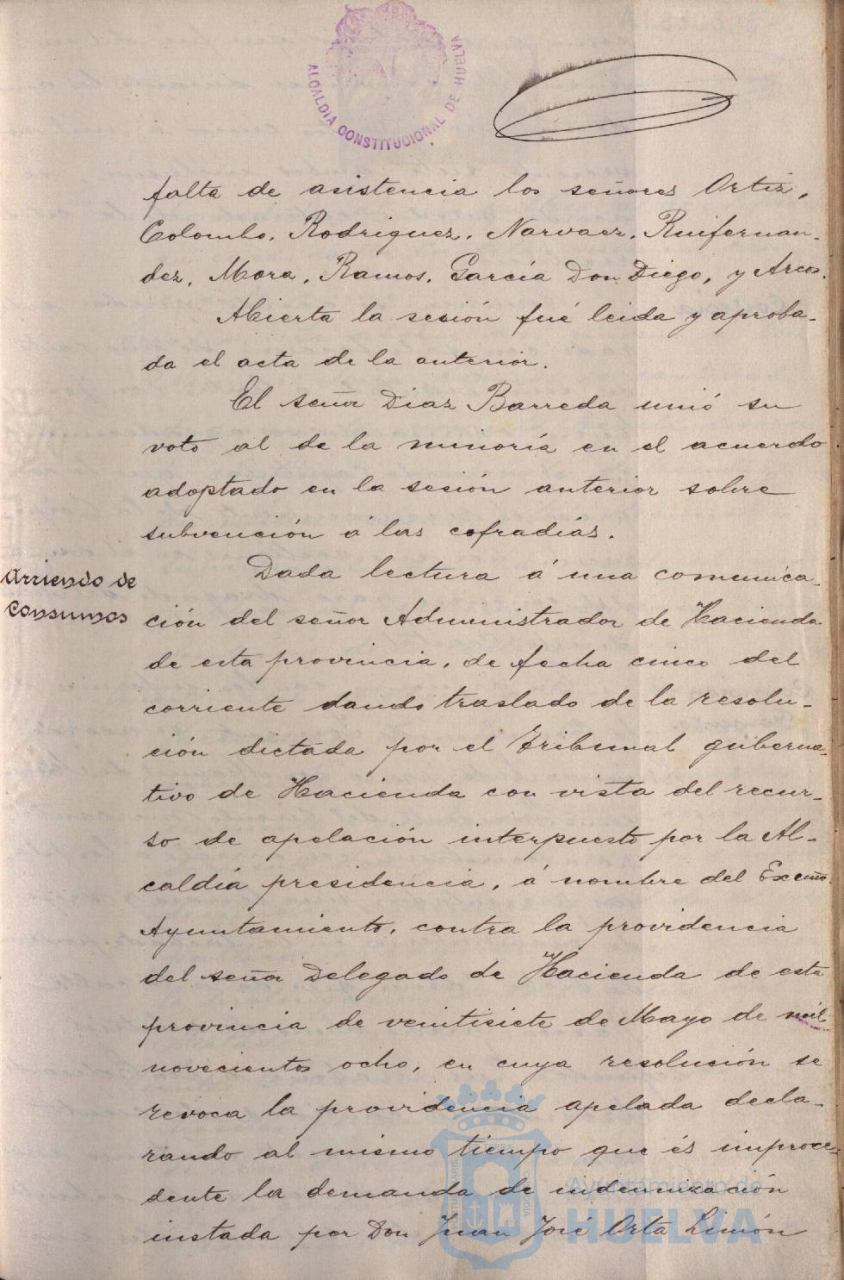 ALCALDÍA CONSTITUCIONAL DE HUELVA
falta de asistencia los señores Ortiz,
Colombo, Rodriguez, Narvaez, Ruifernan-
dez, Mora, Ramos, García Don Diego, y Arcos.
Abierta la sesión fué leida y aproba-
da el acta de la anterior.
El señor Diaz Barreda unió su
voto al de la minoría en el acuerdo
adoptado en la sesión anterior sobre
subvención á las cofradías.
Arriendo de
Consumos
Dada lectura á una comunica-
ción del señor Administrador de Hacienda
de esta provincia, de fecha cinco del
corriente dando traslado de la resolu-
ción dictada por el Tribunal guberna-
tivo de Hacienda con vista del recur-
so de apelación interpuesto por la Al-
caldía presidencia, á nombre del Excmo.
Ayuntamiento, contra la providencia
del señor Delegado de Hacienda de esta
provincia de veintisiete de Mayo de mil
novecientos ocho, en cuya resolución se
revoca la providencia apelada decla-
rando al mismo tiempo que és improce-
dente la demanda de indemnización
instada por Don Juan José Orta Limón
Ayuntamiento de
HUELVA